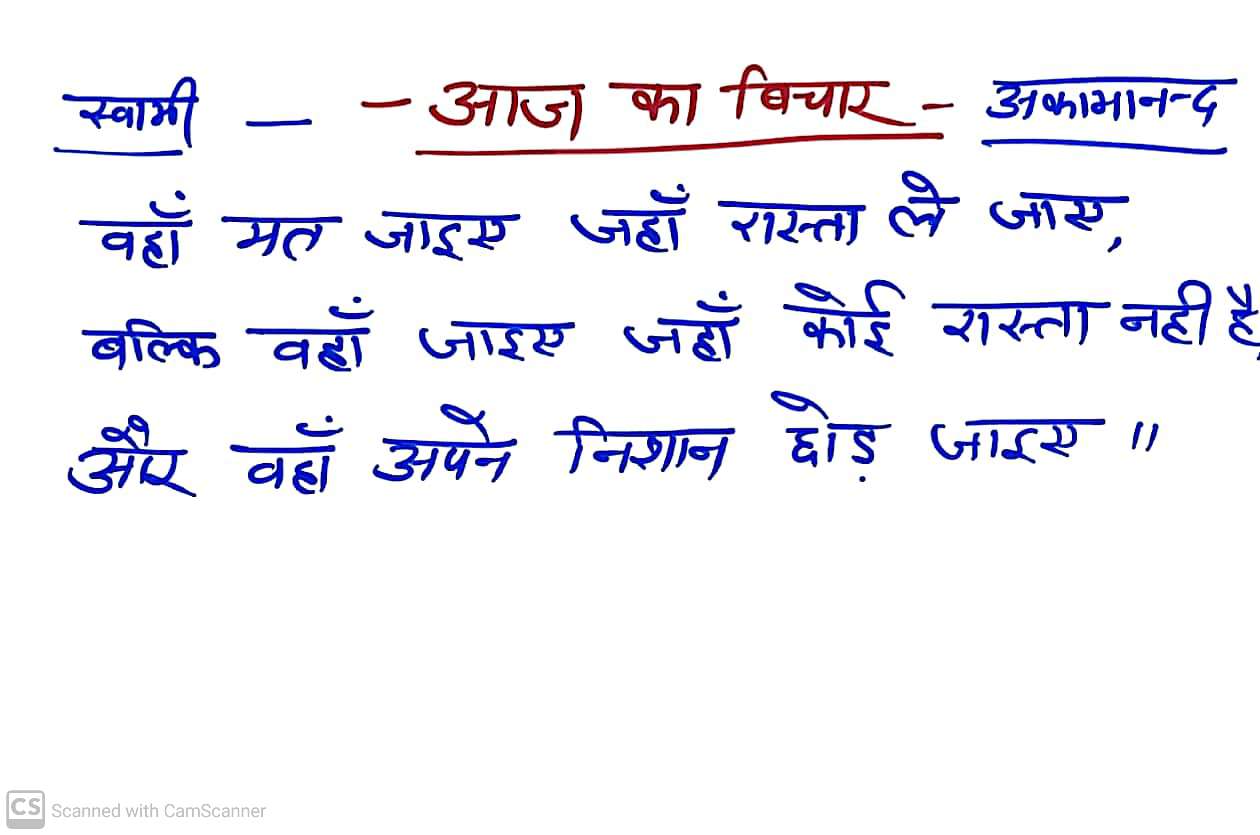 स्वामी — - आज का विचार - अकामानन्द
वहाँ मत जाइए जहाँ रास्ता ले जाए,
बल्कि वहाँ जाइए जहाँ कोई रास्ता नही है,
और वहाँ अपने निशान छोड़ जाइए ॥
CS Scanned with CamScanner